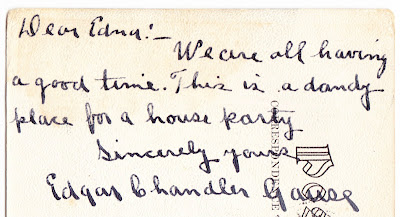 Dear Edna:—
We are all having
a good time. This is a dandy
place for a house party
Sincerely yours
Edgar Chandler
CORRESPONDENCE